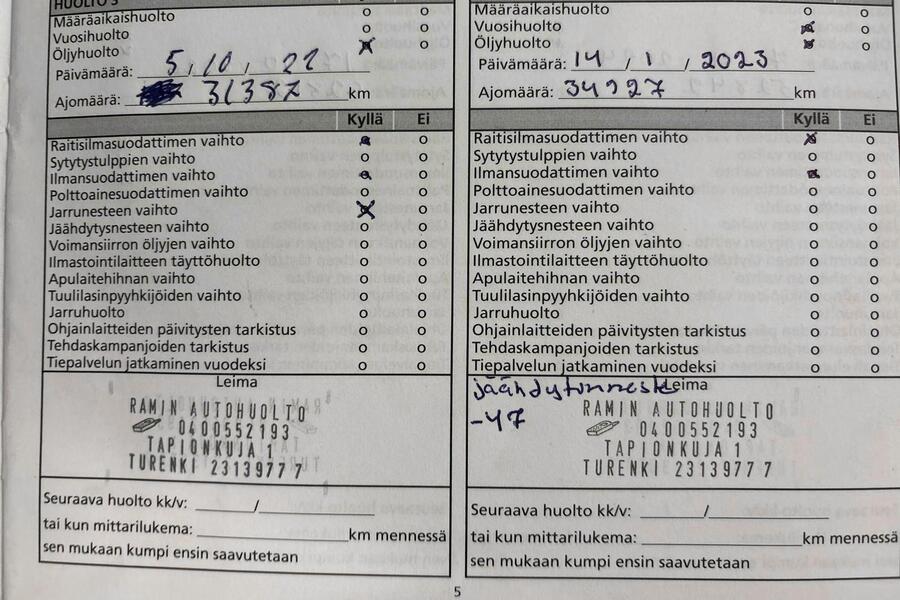 HUOLTO 3
Määräaikaishuolto o o
Vuosihuolto o o
Öljyhuolto x o
Päivämäärä: 5 / 10 / 22
Ajomäärä: 31387 km
Kyllä Ei
Raitisilmasuodattimen vaihto x o
Sytytystulppien vaihto o o
Ilmansuodattimen vaihto x o
Polttoainesuodattimen vaihto o o
Jarrunesteen vaihto x o
Jäähdytysnesteen vaihto o o
Voimansiirron öljyjen vaihto o o
Ilmastointilaitteen täyttöhuolto o o
Apulaitehihnan vaihto o o
Tuulilasinpyyhkijöiden vaihto o o
Jarruhuolto o o
Ohjainlaitteiden päivitysten tarkistus o o
Tehdaskampanjoiden tarkistus o o
Tiepalvelun jatkaminen vuodeksi o o
Leima
RAMIN AUTOHUOLTO
0400552193
TAPIONKUJA 1
TURENKI 2313977 7
Seuraava huolto kk/v: ______/______
tai kun mittarilukema: ______ km mennessä
sen mukaan kumpi ensin saavutetaan
Määräaikaishuolto o o
Vuosihuolto x o
Öljyhuolto x o
Päivämäärä: 14 / 1 / 2023
Ajomäärä: km
Kyllä Ei
Raitisilmasuodattimen vaihto x o
Sytytystulppien vaihto o o
Ilmansuodattimen vaihto x o
Polttoainesuodattimen vaihto o o
Jarrunesteen vaihto o o
Jäähdytysnesteen vaihto o o
Voimansiirron öljyjen vaihto o o
Ilmastointilaitteen täyttöhuolto o o
Apulaitehihnan vaihto o o
Tuulilasinpyyhkijöiden vaihto o o
Jarruhuolto o o
Ohjainlaitteiden päivitysten tarkistus o o
Tehdaskampanjoiden tarkistus o o
Tiepalvelun jatkaminen vuodeksi o o
Leima
-47
RAMIN AUTOHUOLTO
0400552193
TAPIONKUJA 1
TURENKI 2313977 7
Seuraava huolto kk/v: ______/______
tai kun mittarilukema: ______ km mennessä
sen mukaan kumpi ensin saavutetaan
5